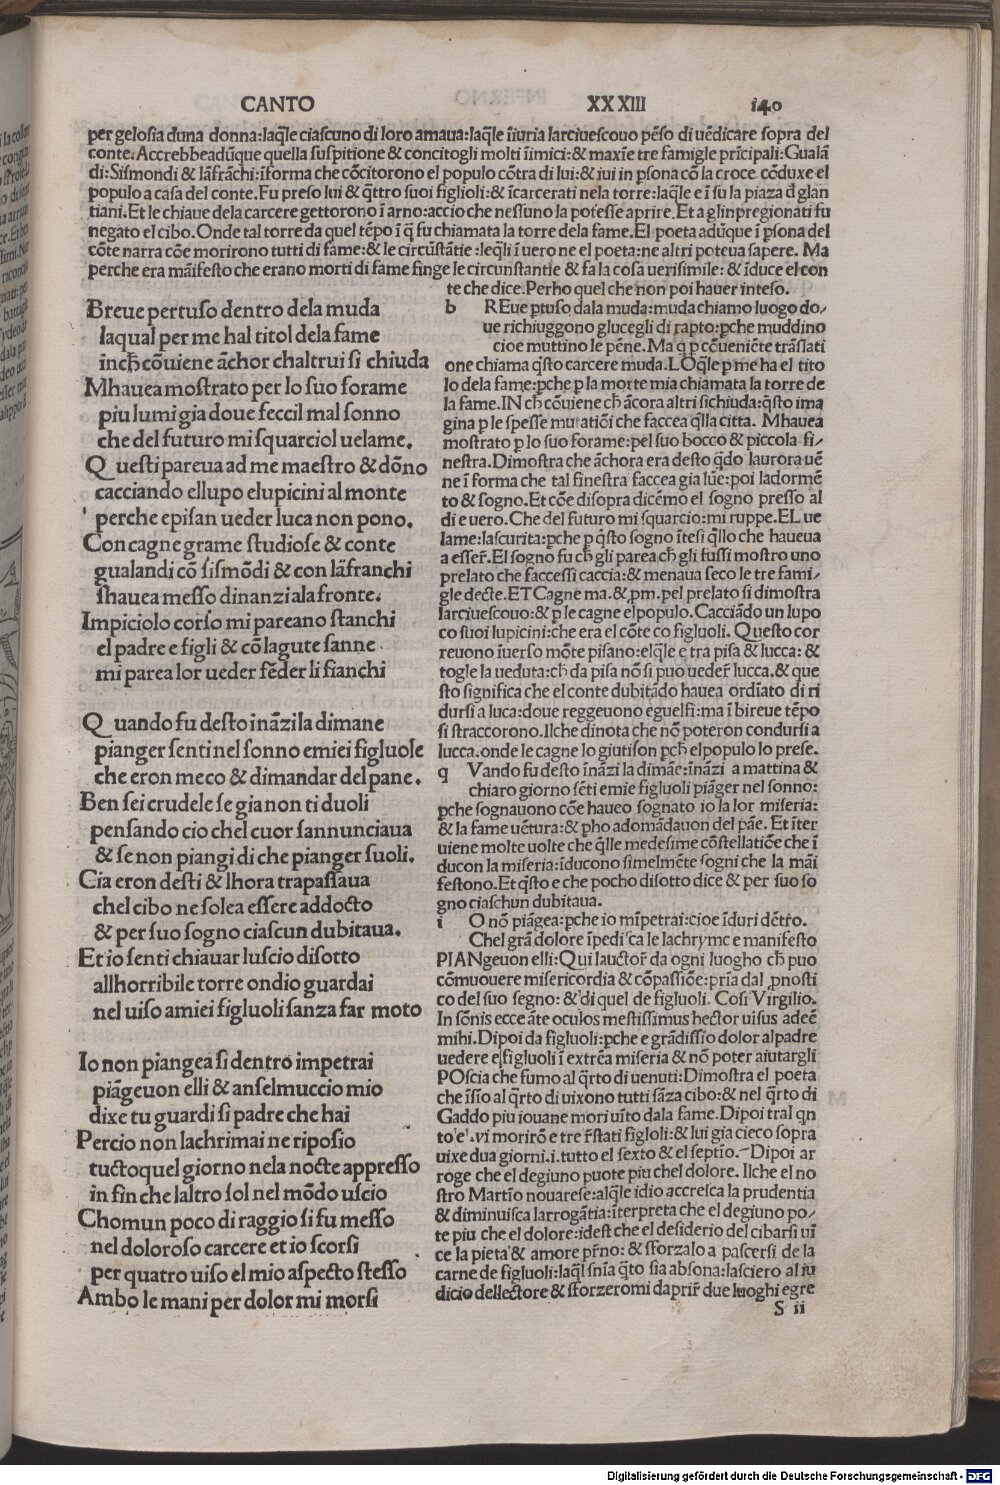 CANTO XXXIII 140
per gelosia duna donna:laqͥle ciascuno di loro amaua:laqͥle ĩiuria larciuescouo pẽso di uẽdicare sopra del
conte.Accrebbeadũque quella suspitione & concitogli molti ĩimici:& maxĩe tre famigle prĩcipali:Gualã
di:Sismondi & lãfrãchi:ĩforma che cõcitorono el populo cõtra di lui:& iui in psona cõ la croce cõduxe el
populo a casa del conte.Fu preso lui & qͥttro suoi figlioli:& ĩcarcerati nela torre:laqͥle e ĩ su la piaza đ glan
tiani.Et le chiaue dela carcere gettorono ĩ arno:accio che nessuno la potesse aprire.Et a glinpregionati fu
negato el cibo.Onde tal torre da quel tẽpo ĩ q̃ fu chiamata la torre dela fame.El poeta adũque ĩ psona del
cõte narra cõe morirono tutti di fame:& le circũstãtie :leqͥli ĩ uero ne el poeta:ne altri poteua sapere. Ma
perche era mãifesto che erano morti di fame finge le circunstantie & fa la cosa uerisimile: & ĩduce el con
te che dice.Perho quel che non poi hauer inteso.
Breue pertuso dentro dela muda
laqual per me hal titol dela fame
inch̃ cõuiene ãchor chaltrui si chiuda
Mhauea mostrato per lo suo forame
piu lumi gia doue feccil mal sonno
che del futuro mi squarciol uelame.
Questi pareua ad me maestro & dõno
cacciando ellupo elupicini al monte
perche episan ueder luca non pono.
Con cagne grame studiose & conte
gualandi cõ sismõdi & con lãfranchi
shauea messo dinanzi ala fronte.
Impiciolo corso mi pareano stanchi
el padre e figli & cõ lagute sanne
mi parea lor ueder fẽder li fianchi
Quando fu desto inãzi la dimane
pianger senti nel sonno emiei figluole
che eron meco & dimandar del pane.
Ben sei crudele se gia non ti duoli
pensando cio chel cuor sannunciaua
& se non piangi di che pianger suoli.
Cia eron desti & lhora trapassaua
chel cibo ne solea essere addocto
& per suo sogno ciascun dubitaua.
Et io senti chiauar luscio disotto
allhorribile torre ondio guardai
nel uiso amiei figluoli sanza far moto
Io non piangea si dentro impetrai
piãgeuon elli & anselmuccio mio
dixe tu guardi si padre che hai
Percio non lachrimai ne riposio
tuctoquel giorno nela nocte appresso
in fin che laltro sol nel mõdo uscio
Chomun poco di raggio si fu messo
nel doloroso carcere et io scorsi
per quatro uiso el mio aspecto stesso
Ambo le mani per dolor mi morsi
b REue ptuso dala muda:muda chiamo luogo do/
ue richiuggono glucegli di rapto:pche muddino
cioe muttino le pẽne.Ma q̃ p cõueniẽte trãslati
one chiama qͥsto carcere muda.LOqͥle p me ha el tito
lo dela fame:pche p la morte mia chiamata la torre de
la fame.IN ch̃ cõuiene ch̃ ãcora altri si chiuda:qͥsto ima
gina p le spesse mutatiõi che faccea qͥlla citta. Mhauea
mostrato p lo suo forame:pel suo bocco & piccola fi/
nestra.Dimostra che ãchora era desto qͥdo laurora uẽ
ne ĩ forma che tal finestra faccea gia lũe:poi ladormẽ
to & sogno.Et cõe disopra dicẽmo el sogno presso al
di e uero.Che del futuro mi squarcio:mi ruppe.EL ue
lame:lascurita:pche p qͥsto sogno ĩtesi qͥllo che haueua
a esser̃.El sogno fu ch̃ gli parea ch̃ gli fussi mostro uno
prelato che faccessi caccia:& menaua seco le tre fami/
gle decte.ET Cagne ma.&.pm.pel prelato si dimostra
larciuescouo:& p le cagne el populo.Cacciãdo un lupo
co suoi lupicini:che era el cõte co figluoli. Questo cor
reuono ĩuerso mõte pisano:elqͥle e tra pisa & lucca: &
togle la ueduta:ch̃ da pisa nõ si puo ueder̃ lucca.& que
sto significa che el conte dubitãdo hauea ordĩato di ri
dursi a luca:doue reggeuono eguelfi:ma ĩ bireue tẽpo
si straccorono.Ilche dinota che nõ poteron condursi a
lucca.onde le cagne lo giutison pch̃ el populo lo prese.
q Vando fu desto ĩnãzi la dimãe:ĩnãzi a mattina &
chiaro giorno sẽti emie figluoli piãger nel sonno:
pche sognauono cõe haueo sognato io la lor miseria:
& la fame uẽtura:& pho adomãdauon del pãe. Et ĩter
uiene molte uolte che qͥlle medesime cõstellatiõe che ĩ
ducon la miseria:ĩducono simelmẽte sogni che la mãi
festono.Et qͥsto e che pocho disotto dice & per suo so
gno ciaschun dubitaua.
i O nõ piãgea:pche io mĩpetrai:cioe ĩduri dẽtro.
Chel grã dolore ĩpedisca le lachryme e manifesto
PIANgeuon elli:Qui lauctor̃ da ogni luogho ch̃ puo
cõmuouere misericordia & cõpassiõe:pria dal pnosti
co del suo segno: & di quel de figluoli. Cosi Virgilio.
In sõnis ecce ãte oculos mestissimus hector uisus adeẽ
mihi.Dipoi da figluoli:pche e grãdissio dolor al padre
uedere e figluoli ĩ extrẽa miseria & nõ poter aiutargli
POscia che fumo al qͥrto di uenuti:Dimostra el poeta
che ĩsio al qͥrto di uixono tutti sãza cibo:& nel qͥrto di
Gaddo piu iouane mori uĩto dala fame.Dipoi tral qn
to e .vi morirõ e tre r̃stati figloli:& lui gia cieco sopra
uixe dua giorni.i.tutto el sexto & el septio. Dipoi ar
roge che el degiuno puote piu chel dolore. Ilche el no
stro Martĩo nouarese:alqͥle idio accresca la prudentia
& diminuisca larrogãtia:ĩterpreta che el degiuno po/
te piu che el dolore:idest che el desiderio del cibarsi uĩ
ce la pieta & amore pr̃no: & sforzalo a pascersi de la
carne de figluoli:laqͥl snĩa qͥto sia absona:lasciero al iu
dicio dellectore & sforzeromi daprir̃ due luoghi egre
S ii
Digitalisierung gefördert durch die Deutsche Forschungsgemeinschaft - DFG